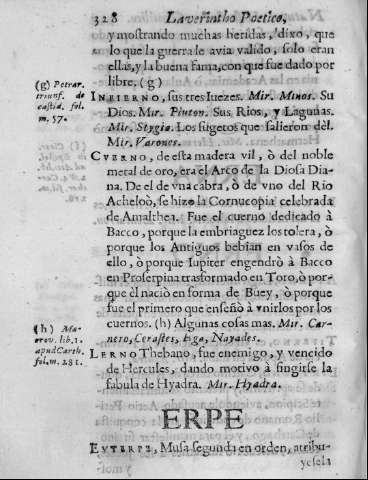 328 Laverintho Poetico,
y mostrando muchas heridas, dixo, que
lo que la guerra le avia valido, solo eran
ellas, y la buena fama, con que fue dado por
libre. (g)
(g) Petrar.
triunf. de
castid. fol.
m. 57.
INFIERNO, sus tres Iuezes. Mir. Minos. Su
Dios. Mir. Pluton. Sus Rios, y Lagunas.
Mir. Stygia. Los sugetos que salieron dèl.
Mir. Varones.
CVERNO, de esta madera vil, ò del noble
metal de oro, era el Arco de la Diosa Dia-
na. De el de vna cabra, ò de vno del Rio
Acheloò, se hizo la Cornucopia celebrada
de Amalthea. Fue el cuerno dedicado à
Bacco, porque la embriaguez los tolera, ò
porque los Antiguos bebian en vasos de
ello, ò porque Iupiter engendrò à Bacco
en Proserpina trasformado en Toro, ò por-
que èl naciò en forma de Buey, ò porque
fue el primero que enseñò à vnirlos por los
cuernos. (h) Algunas cosas mas. Mir. Car-
nero, Cerastes, Ega, Nayades.
(h) Ma-
crov. lib. 1.
apud Carth.
fol. m. 281.
LERNO Thebano, fue enemigo, y vencido
de Hercules, dando motivo à fingirse la
fabula de Hyadra. Mir. Hyadra.
ERPE
EVTERPE, Musa segunda en orden, atribu-
yesela